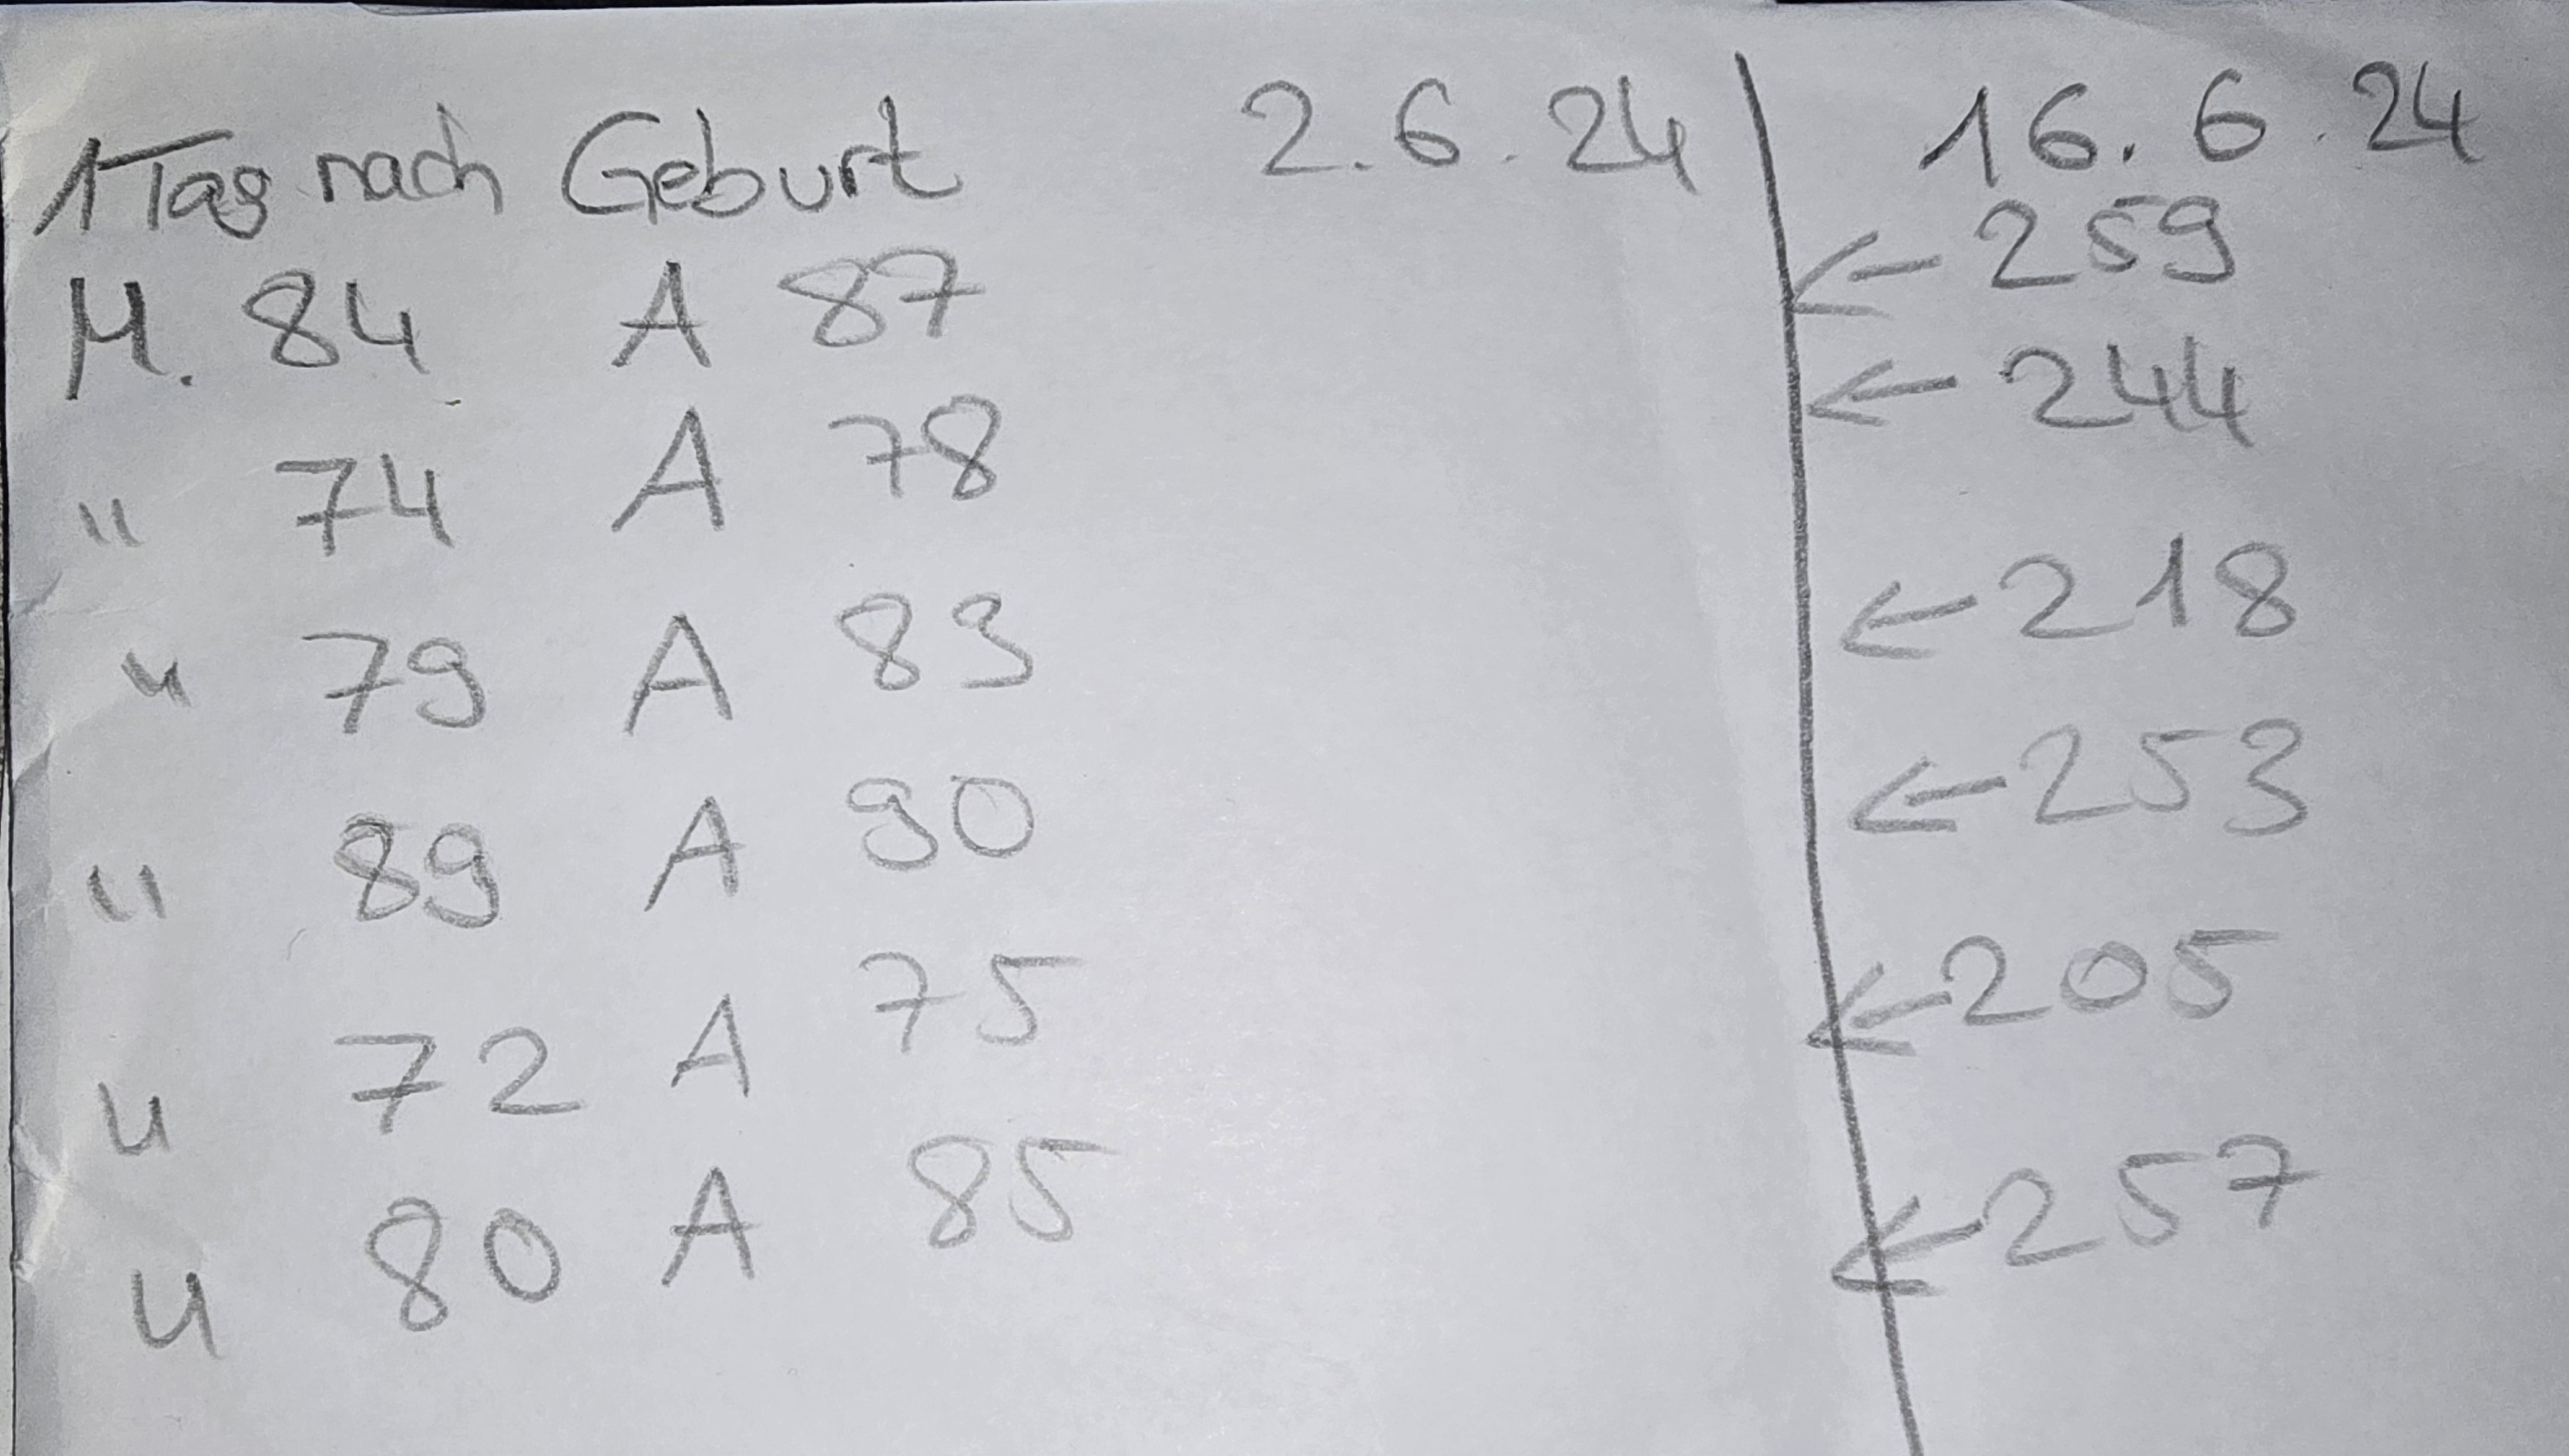 1 Tag nach Geburt 2.6.24 | 16.6.24
M. 84 A 87 ← 259
" 74 A 78 ← 244
" 79 A 83 ← 218
" 89 A 90 ← 253
" 72 A 75 ← 205
" 80 A 85 ← 257